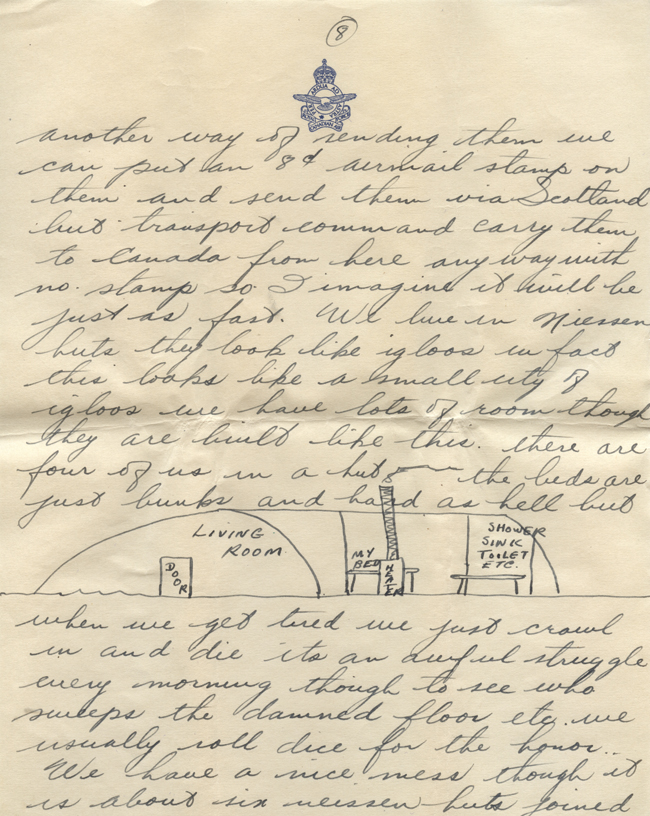 8
PER ARDUA AD ASTRA
another way of sending them we
can put an 8¢ airmail stamp on
them and send them via Scotland
but transport command carry them
to Canada from here anyway with
no. stamp so I imagine it will be
just as fast. We live in Niessen
huts they look like igloos in fact
this looks like a small city of
igloos we have lots of room though
they are built like this. there are
four of us in a hut the beds are
just bunks and hard as hell but
LIVING
ROOM
DOOR
MY
BED
HEATER
SHOWER
SINK
TOILET
ETC.
when we get tired we just crawl
in and die its an awful struggle
every morning though to see who
sweeps the damned floor etc. we
usually roll dice for the honor..
We have a nice mess though it
is about six neissen huts joined